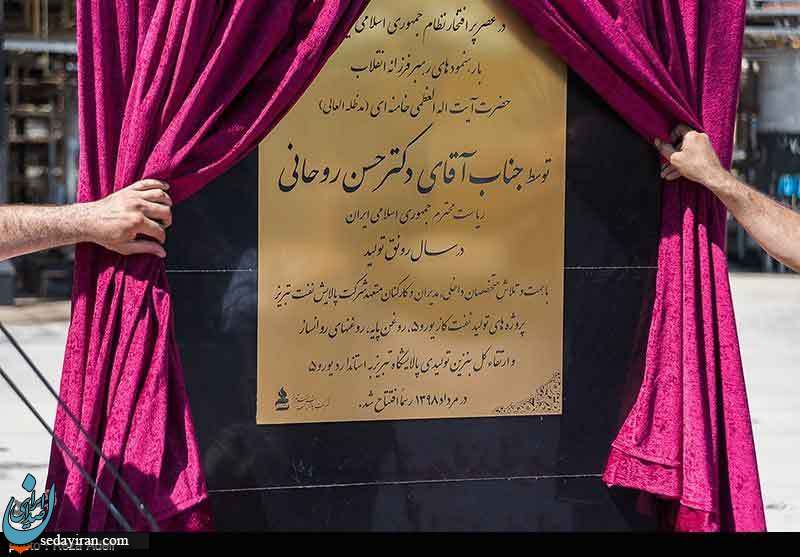 در عصر پر افتخار نظام جمهوری اسلامی
با رهنمودهای رهبر فرزانه انقلاب
حضرت آیت اله العظمی خامنه ای (مدظله العالی)
توسط جناب آقای دکتر حسن روحانی
ریاست محترم جمهوری اسلامی ایران
در سال رونق تولید
با همت و تلاش متخصصان داخلی، مدیران و کارکنان متعهد شرکت پالایش نفت تبریز
پروژه های تولید نفت گاز یورو۵، روغن پایه، روغنهای روانساز
و ارتقاء کل بنزین تولیدی پالایشگاه تبریز به استاندارد یورو۵
در مرداد ۱۳۹۸ رسماً افتتاح شد.
صدای ایران
sedayiran.com